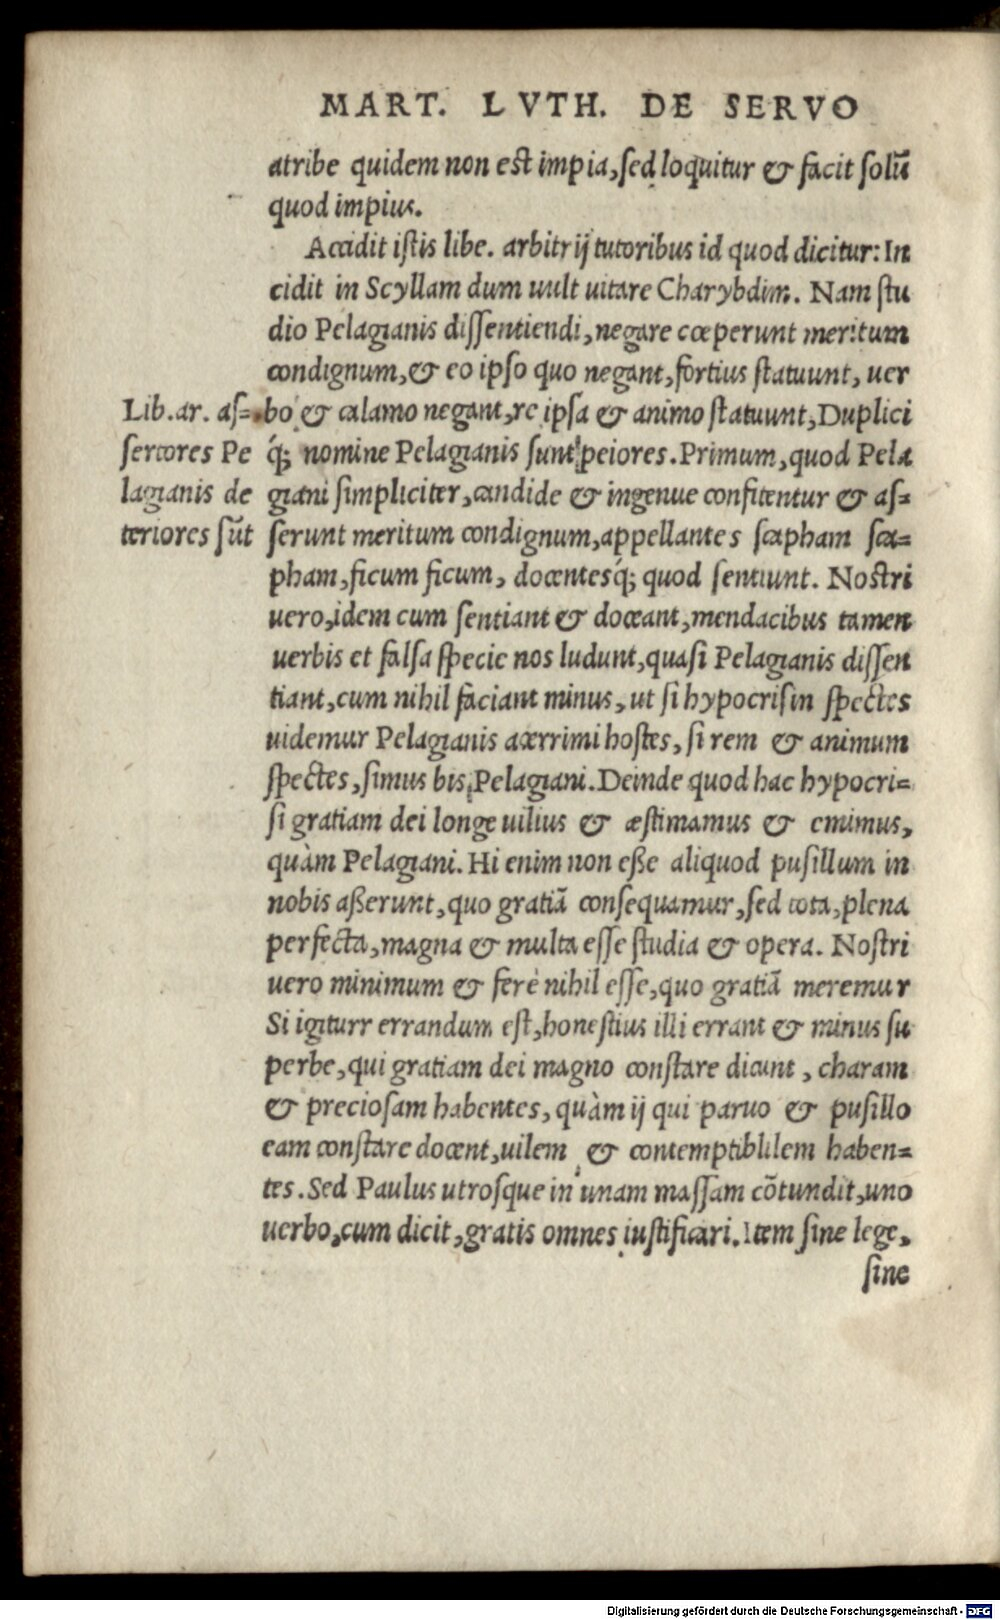 MART. LVTH. DE SERVO
atribe quidem non est impia, ſed loquitur & facit ſolū
quod impius.
Accidit iſtis libe. arbitrij tutoribus id quod dicitur: In
cidit in Scyllam dum uult uitare Charybdim. Nam ſtu
dio Pelagianis diſſentiendi, negare cœperunt meritum
condignum, & eo ipſo quo negant, fortius ſtatuunt, uer
bo & calamo negant, re ipſa & animo ſtatuunt, Duplici
q́; nomine Pelagianis ſunt peiores. Primum, quod Pela
giani ſimpliciter, candide & ingenue confitentur & aſ=
ſerunt meritum condignum, appellantes ſcapham ſca=
pham, ficum ficum, docentesq́; quod ſentiunt. Noſtri
uero, idem cum ſentiant & doceant, mendacibus tamen
uerbis et falſa ſpecie nos ludunt, quaſi Pelagianis diſſen
tiant, cum nihil faciant minus, ut ſi hypocriſin ſpectes
uidemur Pelagianis acerrimi hoſtes, ſi rem & animum
ſpectes, ſimus bis Pelagiani. Deinde quod hac hypocri=
ſi gratiam dei longe uilius & æſtimamus & emimus,
quàm Pelagiani. Hi enim non eße aliquod puſillum in
nobis aßerunt, quo gratiā conſequamur, ſed tota, plena
perfecta, magna & multa eſſe ſtudia & opera. Noſtri
uero minimum & ferè nihil eſſe, quo gratiā meremur
Si igiturr errandum eſt, honeſtius illi errant & minus ſu
perbe, qui gratiam dei magno conſtare dicunt, charam
& precioſam habentes, quàm ij qui paruo & puſillo
eam conſtare docent, uilem & contemptiblilem haben=
tes. Sed Paulus utroſque in unam maſſam cōtundit, uno
uerbo, cum dicit, gratis omnes iuſtificari. Item ſine lege,
ſine
Lib. ar. aſ=
ſertores Pe
lagianis de
teriores ſūt
Digitalisierung gefördert durch die Deutsche Forschungsgemeinschaft - DFG